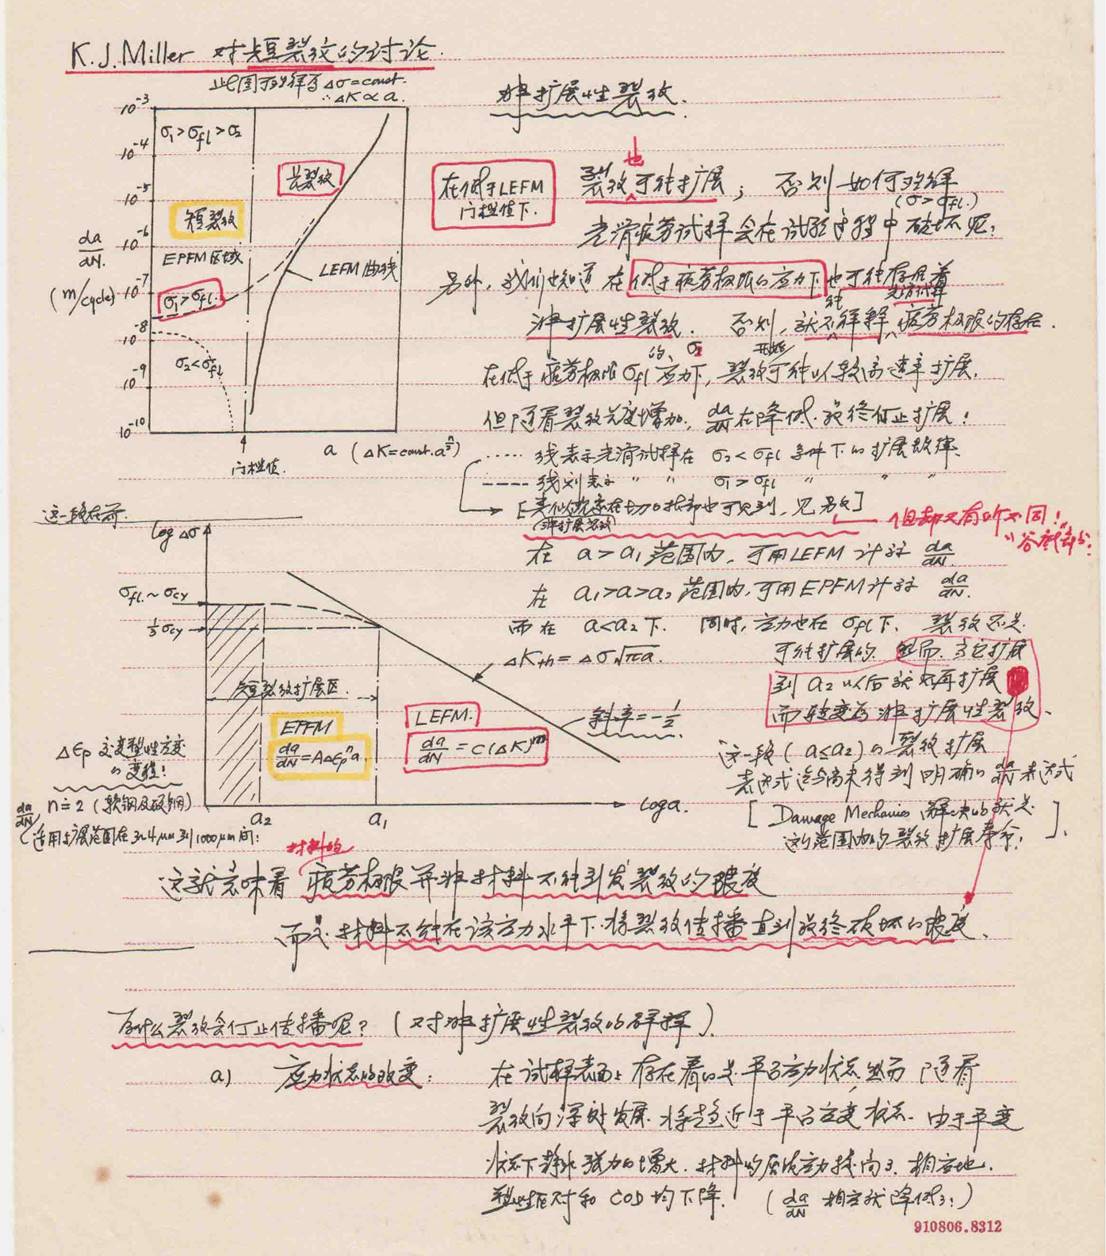 K.J.Miller 对短裂纹的讨论.
此图可解释为 Δσ=const.
∴ ΔK∝a.
10⁻³
σ₁>σfl>σ₂
10⁻⁴
长裂纹
10⁻⁵
短裂纹
10⁻⁶
da/dN.
EPFM 区域
LEFM 曲线
(m/cycle)
10⁻⁷
σ₁>σfl.
10⁻⁸
σ₂<σfl
10⁻⁹
10⁻¹⁰
门槛值.
a (ΔK=const.a^n/2)
非扩展性裂纹.
在低于LEFM
门槛值下.
裂纹也可能扩展; 否则如何解释
(σ>σfl.)
光滑疲劳试样会在试验过程中破坏呢;
另外, 我们也知道 在低于疲劳极限的应力下也可能存在着
非扩展性裂纹. 否则, 就不能解释光滑试样疲劳极限的存在.
在低于疲劳极限σfl的应力σ₂下, 裂纹开始可能以较高速率扩展,
但随着裂纹长度增加, da/dN在降低.最终停止扩展!
····· 线表示光滑试样在 σ₂<σfl 条件下的扩展效律.
---- 线则表示 〃 〃 σ₁>σfl 〃 〃 〃
[类似现象在切口根部也可见到, 见另文]
(非扩展裂纹)
但却又有所不同!
在 a>a₁ 范围内, 可用LEFM 计算 da/dN.
在 a₁>a>a₂ 范围内, 可用EPFM计算 da/dN.
而在 a<a₂下. 同时, 应力也在σfl下. 裂纹还是
可能扩展的. 然而, 当它扩展
到 a₂以后就不再扩展
而转变为非扩展性裂纹.
这一段(a≤a₂)的裂纹扩展
表达式迄今尚未得到明确的da/dN表达式
[ Damage Mechanics 解决的就是
这个范围内的裂纹扩展寿命! ].
log Δσ
σfl.~σcy
⅓σcy
ΔKth=Δσ√πa.
短裂纹扩展区.
EPFM
da/dN=AΔεp^n a.
LEFM.
da/dN=C(ΔK)^m
斜率=-½
Δεp 交变塑性应变
的变程!
n≐2 (软钢及碳钢)
a₂
a₁
loga.
这就意味着 材料的疲劳极限并非材料不能引发裂纹的限度
而是材料不能在该应力水平下.将裂纹传播直到最终破坏的限度.
为什么裂纹会停止传播呢? (对非扩展性裂纹的解释).
a) 应力状态的改变:
在试样表面上存在着的是平面应力状态.然而 随着
裂纹向深处发展.将趋近于平面应变状态. 由于平变
状态下静水张力的增大. 材料的屈服应力提高了. 相应地.
塑性区尺寸和 COD 均下降. (da/dN 相应就降低了!)
910806.8312